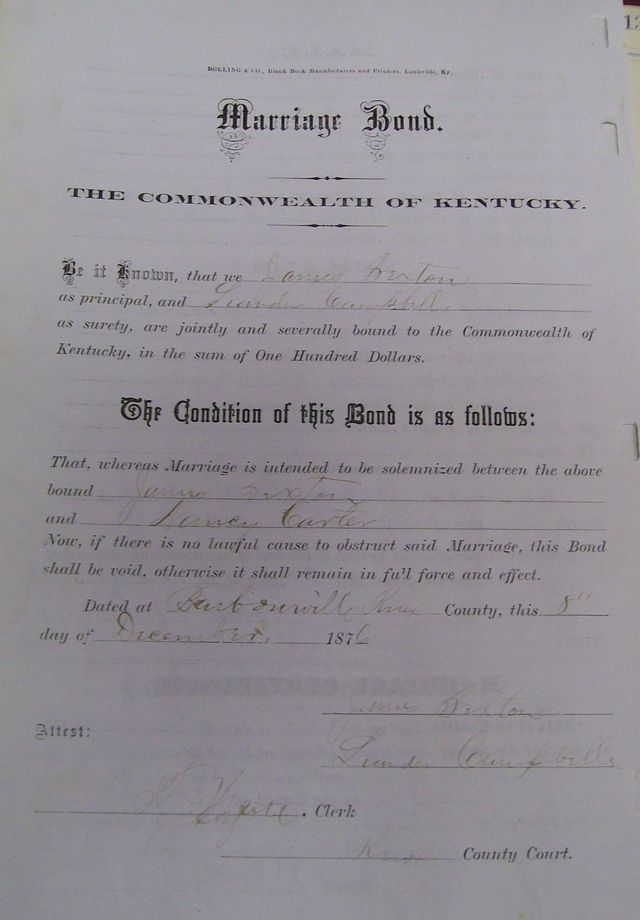 BOLLING & CO., Blank Book Manufacturers and Printers, Louisville, Ky.
Marriage Bond.
THE COMMONWEALTH OF KENTUCKY.
Be it Known, that we James
as principal, and Leander Campbell
as surety, are jointly and severally bound to the Commonwealth of
Kentucky, in the sum of One Hundred Dollars.
The Condition of this Bond is as follows:
That, whereas Marriage is intended to be solemnized between the above
bound James
and Nancy Carter
Now, if there is no lawful cause to obstruct said Marriage, this Bond
shall be void, otherwise it shall remain in full force and effect.
Dated at Barbourville Knox County, this 8"
day of December, 1876
James
Attest:
Leander Campbell
. Clerk
Knox County Court.